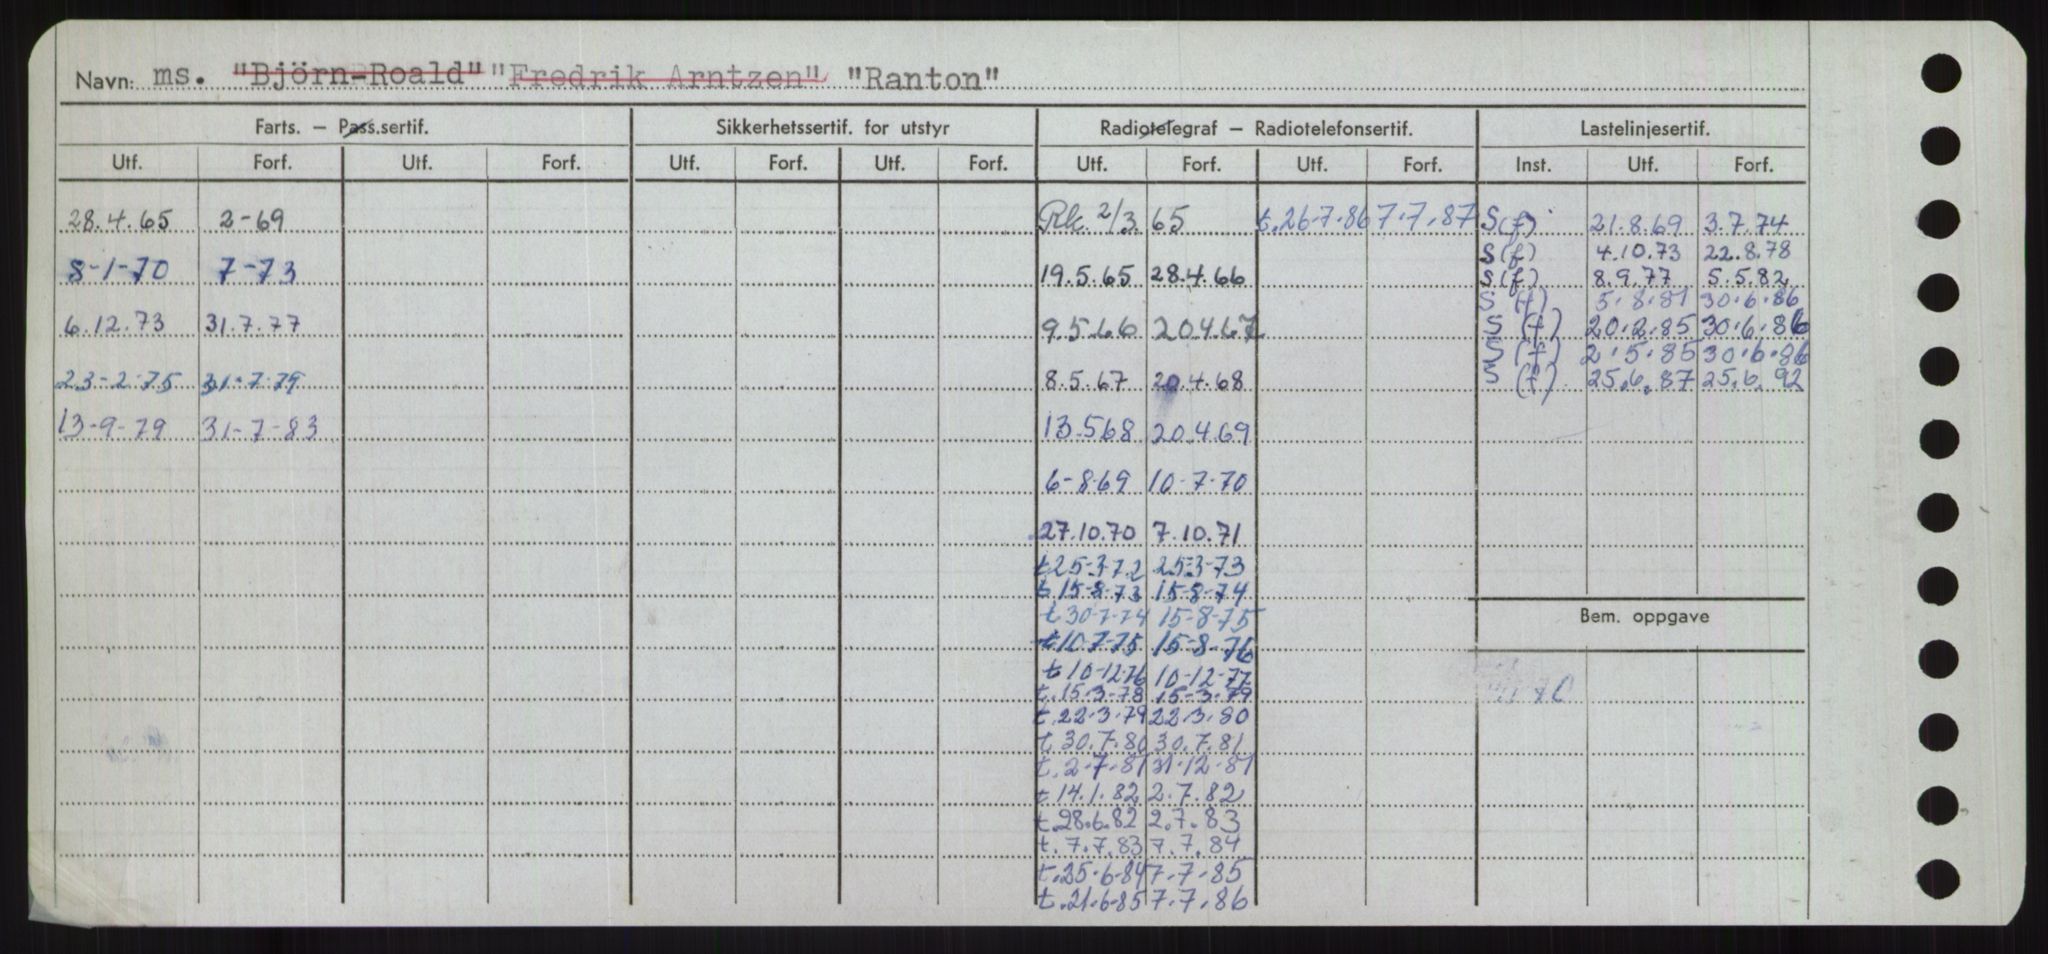 Navn: ms. "Björn-Roald" "Fredrik Arntzen" "Ranton"
Farts. – Pass.sertif. Sikkerhetssertif. for utstyr Radiotelegraf – Radiotelefonsertif. Lastelinjesertif.
Utf. Forf. Utf. Forf. Utf. Forf. Utf. Forf. Utf. Forf. Utf. Forf. Inst. Utf. Forf.
28.4.65 2-69 Rk. 2/3. 65 t.26-7.86 7.7.87 S(f) 21.8.69 3.7.74
S(f) 4.10.73 22.8.78
8-1-70 7-73 19.5.65 28.4.66 S(f) 8.9.77 5.5.82
S(f) 5.8.81 30.6.86
6.12.73 31.7.77 9.5.66 20.4.67 S(f) 20.2.85 30.6.86
S(f) 2.5.85 30.6.86
23-2-75 31-7-79 8.5.67 20.4.68 S(f) 25.6.87 25.6.92
13-9-79 31-7-83 13.5.68 20.4.69
6-8-69 10-7-70
27.10.70 7.10.71
t25-3-72 25-3-73
t.15-8-73 15-8-74
t30-7-74 15-8-75
t10-7-75 15-8-76
t10-12-76 10-12-77
t.15.3-78 15-3-79
t.22.3.79 22.3.80
t.30.7.80 30.7.81
t.2.7.81 31.12.81
t14.1.82 2.7.82
t.28.6.82 2.7.83
t.7.7.83 7.7.84
t.25.6-84 7.7.85
t.21.6-85 7.7.86
Bem. oppgave